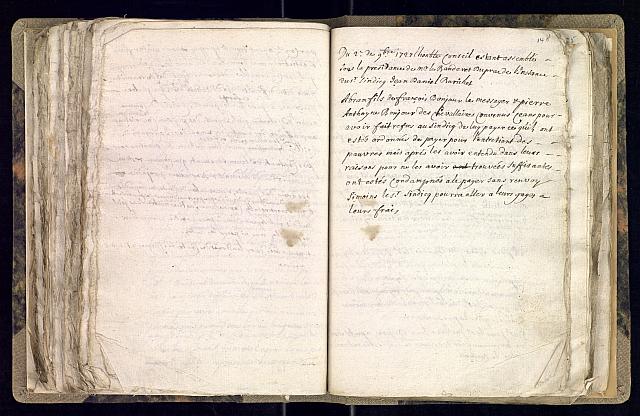 148
Du 2e de 9bre 1727 lhonble Conseil estant assemblé
sous la presidance de mr le Banderet Duprac de l'instance
du sr Sindicq Jean Daniel Barichet
Abram fils de françois Bonjour le messager & pierre
Anthoyne Bonjour des chevallaines convenus ceans pour
avoir fait refus au sindicq de luy payer ce qu'il ont
estés ordonnés de payer pour l'entretient des
pauvres mais après les avoir entendu dans leurs
raisons pour ne les avoir trouvées suffisantes
ont estés condamnés a le payer sans renvoy
le sr Sindicq pourra aller a leurs gages a
leurs frais